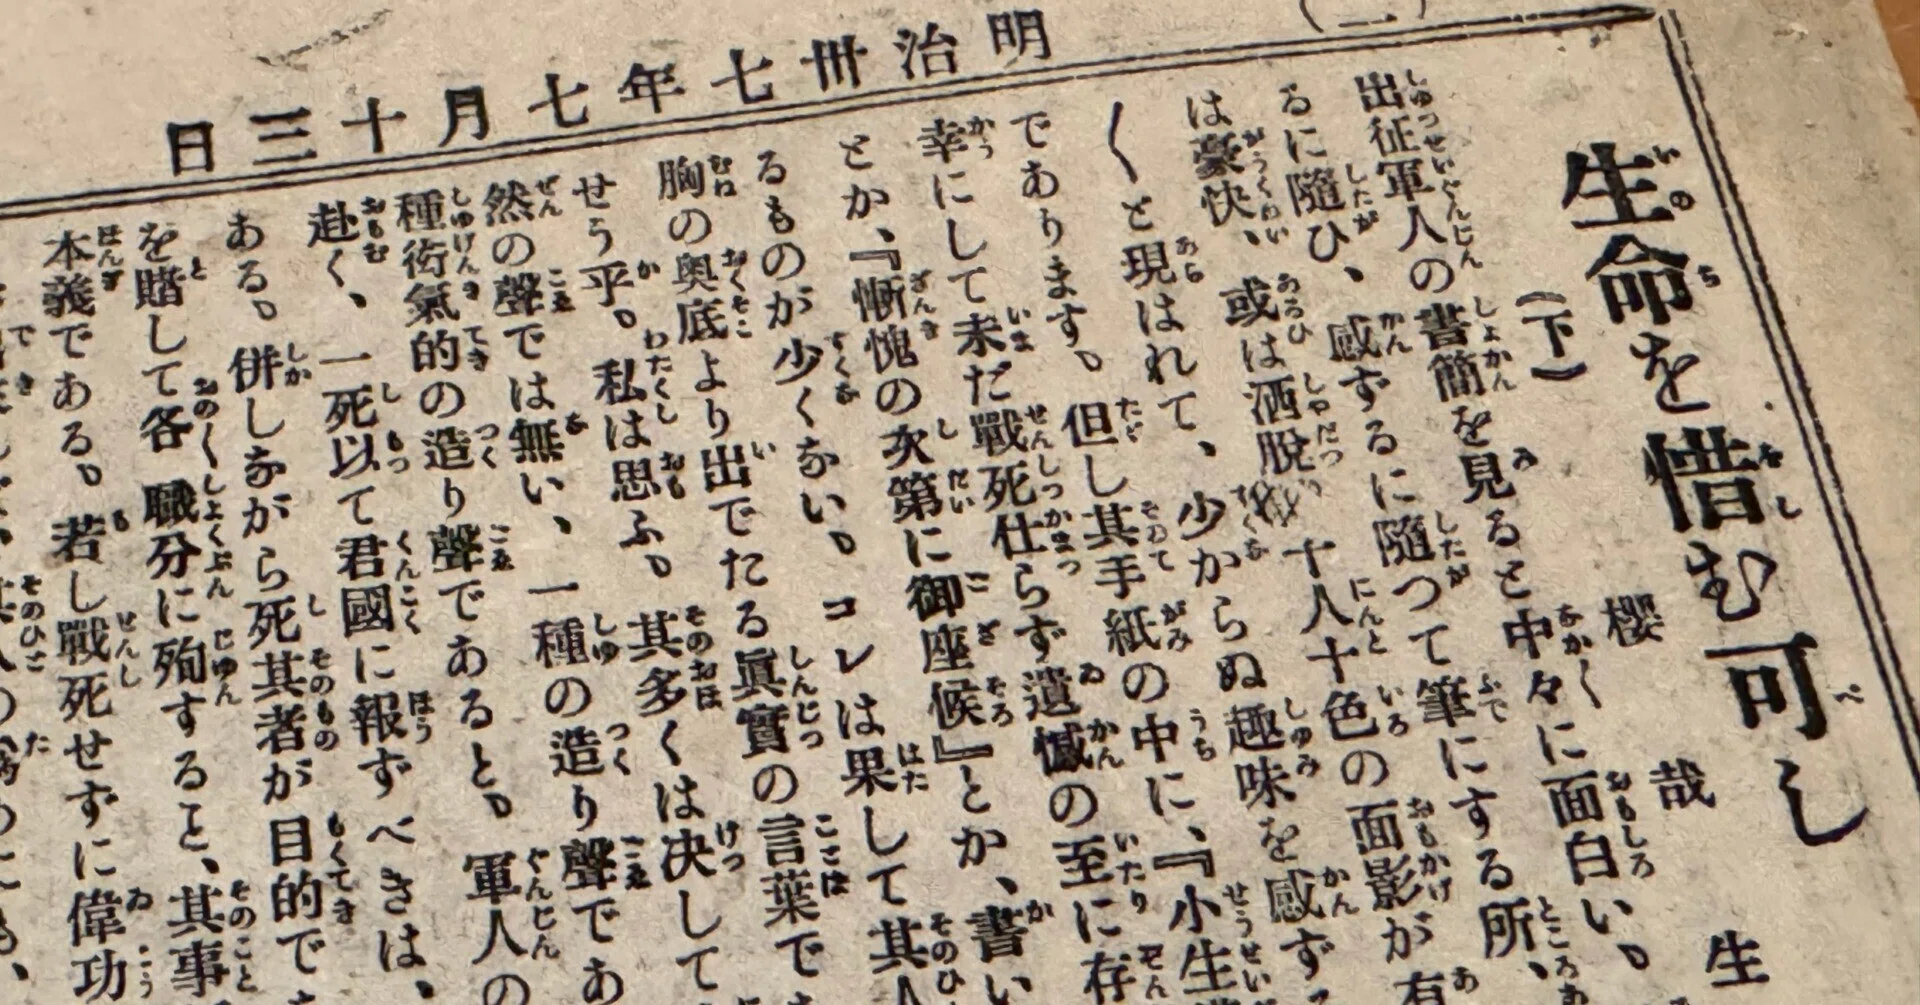 (二)
明治卅七年七月十三日
生命を惜む可し
(下)
櫻哉生
出征軍人の書簡を見ると中々に面白い。
るに隨ひ、感ずるに隨つて筆にする所、
は豪快、或は洒脱、十人十色の面影が有
〱と現はれて、少からぬ趣味を感ず
であります。但し其手紙の中に、『小生
幸にして未だ戰死仕らず遺憾の至に存
とか、『慚愧の次第に御座候』とか、書い
るものが少くない。コレは果して其人
胸の奥底より出でたる眞實の言葉で
せう乎。私は思ふ。其多くは决して
然の聲では無い、一種の造り聲であ
種衒氣的の造り聲であると。軍人の
赴く、一死以て君國に報ずべきは、
ある。併しながら死其者が目的で
を賭して各職分に殉すること、其事
本義である。若し戰死せずに偉功